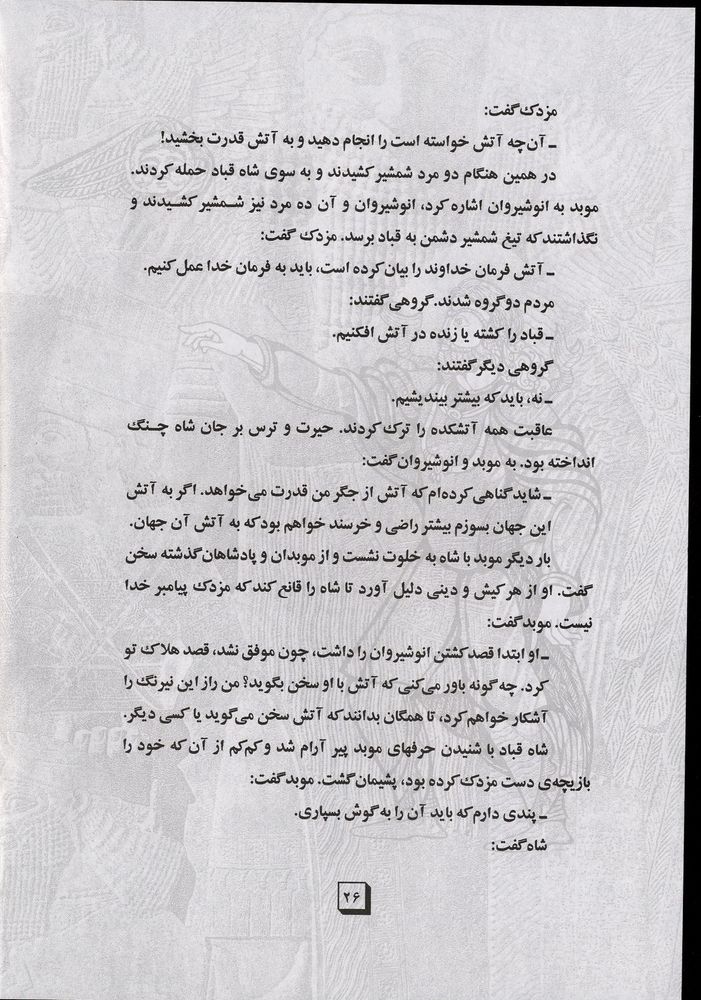 مزدک گفت:
ـ آن‌چه آتش خواسته است را انجام دهید و به آتش قدرت بخشید!
در همین هنگام دو مرد شمشیر کشیدند و به سوی شاه قباد حمله کردند.
موبد به انوشیروان اشاره کرد، انوشیروان و آن ده مرد نیز شـمشیر کشـیدند و
نگذاشتند که تیغ شمشیر دشمن به قباد برسد. مزدک گفت:
ـ آتش فرمان خداوند را بیان کرده است، باید به فرمان خدا عمل کنیم.
مردم دو گروه شدند. گروهی گفتند:
ـ قباد را کشته یا زنده در آتش افکنیم.
گروهی دیگر گفتند:
ـ نه، باید که بیشتر بیندیشیم.
عاقبت همه آتشکده را ترک کردند. حیرت و ترس بر جان شاه چـنگ
انداخته بود. به موبد و انوشیروان گفت:
ـ شاید گناهی کرده‌ام که آتش از جگر من قدرت می‌خواهد. اگر به آتش
این جهان بسوزم بیشتر راضی و خرسند خواهم بود که به آتش آن جهان.
بار دیگر موبد با شاه به خلوت نشست و از موبدان و پادشاهان گذشته سخن
گفت. او از هر کیش و دینی دلیل آورد تا شاه را قانع کند که مزدک پیامبر خدا
نیست. موبد گفت:
ـ او ابتدا قصد کشتن انوشیروان را داشت، چون موفق نشد، قصد هلاک تو
کرد. چه گونه باور می‌کنی که آتش با او سخن بگوید؟ من راز این نیرنگ را
آشکار خواهم کرد، تا همگان بدانند که آتش سخن می‌گوید یا کسی دیگر.
شاه قباد با شنیدن حرفهای موبد پیر آرام شد و کم‌کم از آن که خود را
بازیچه‌ی دست مزدک کرده بود، پشیمان گشت. موبد گفت:
ـ پندی دارم که باید آن را به گوش بسپاری.
شاه گفت:
۲۶